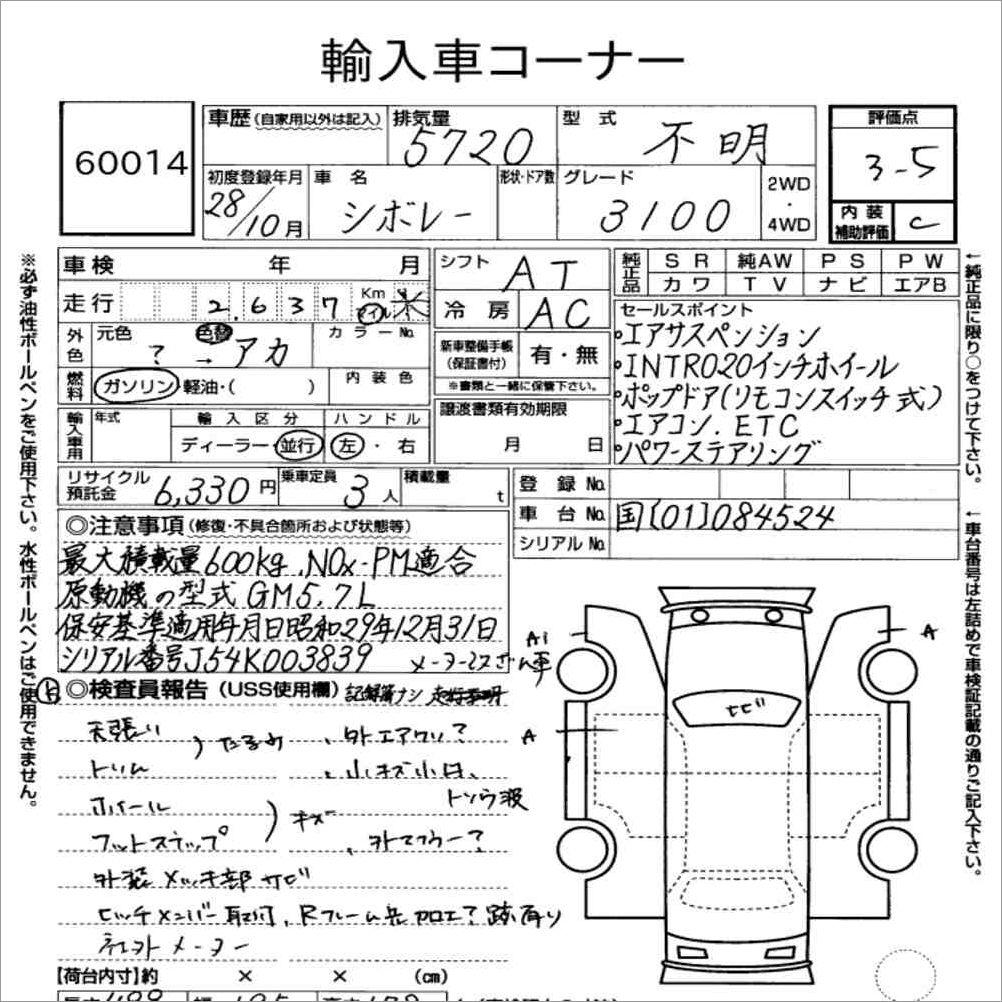 輸入車コーナー
60014
車歴(自家用以外は記入)
排気量 5720
型式 不明
評価点 3-5
初度登録年月 28/10月
車名 シボレー
形状・ドア数
グレード 3100
2WD・4WD
内装補助評価 C
車検 年 月
シフト AT
純正品 SR 純AW PS PW
カワ TV ナビ エアB
走行 2,637 Km マイル
冷房 AC
セールスポイント
・エアサスペンション
・INTRO20インチホイール
・ポップドア(リモコンスイッチ式)
・エアコン.ETC
・パワーステアリング
外色 元色 ? 色替 → アカ カラーNo.
新車整備手帳(保証書付) 有・無
※書類と一緒に保管下さい。
燃料 ガソリン・軽油・( ) 内装色
譲渡書類有効期限 月 日
輸入車用 年式 輸入区分 ハンドル
ディーラー・並行 左・右
リサイクル預託金 6,330円 乗車定員 3人 積載量 t
登録No.
車台No. 国[01]084524
シリアルNo.
◎注意事項(修復・不具合箇所および状態等)
最大積載量600kg.NOx・PM適合
原動機の型式GM5.7L
保安基準適用年月日昭和29年12月31日
シリアル番号J54K003839
◎検査員報告(USS使用欄) 記録簿ナシ
天張り
トリム
) たるみ
、外エアクリ?
、小キズ小凹
ホイール
フットステップ
) キズ
トソウ波
、外マフラー?
外装メッキ部サビ
ヒッチメンバー取付、Rフレーム
社外メーター
【荷台内寸】約 × × (cm)
A1
A
A
ヒビ
※必ず油性ボールペンをご使用下さい。水性ボールペンはご使用できません。
←純正品に限り○をつけて下さい。
←車台番号は左詰めで車検証記載の通りご記入下さい。